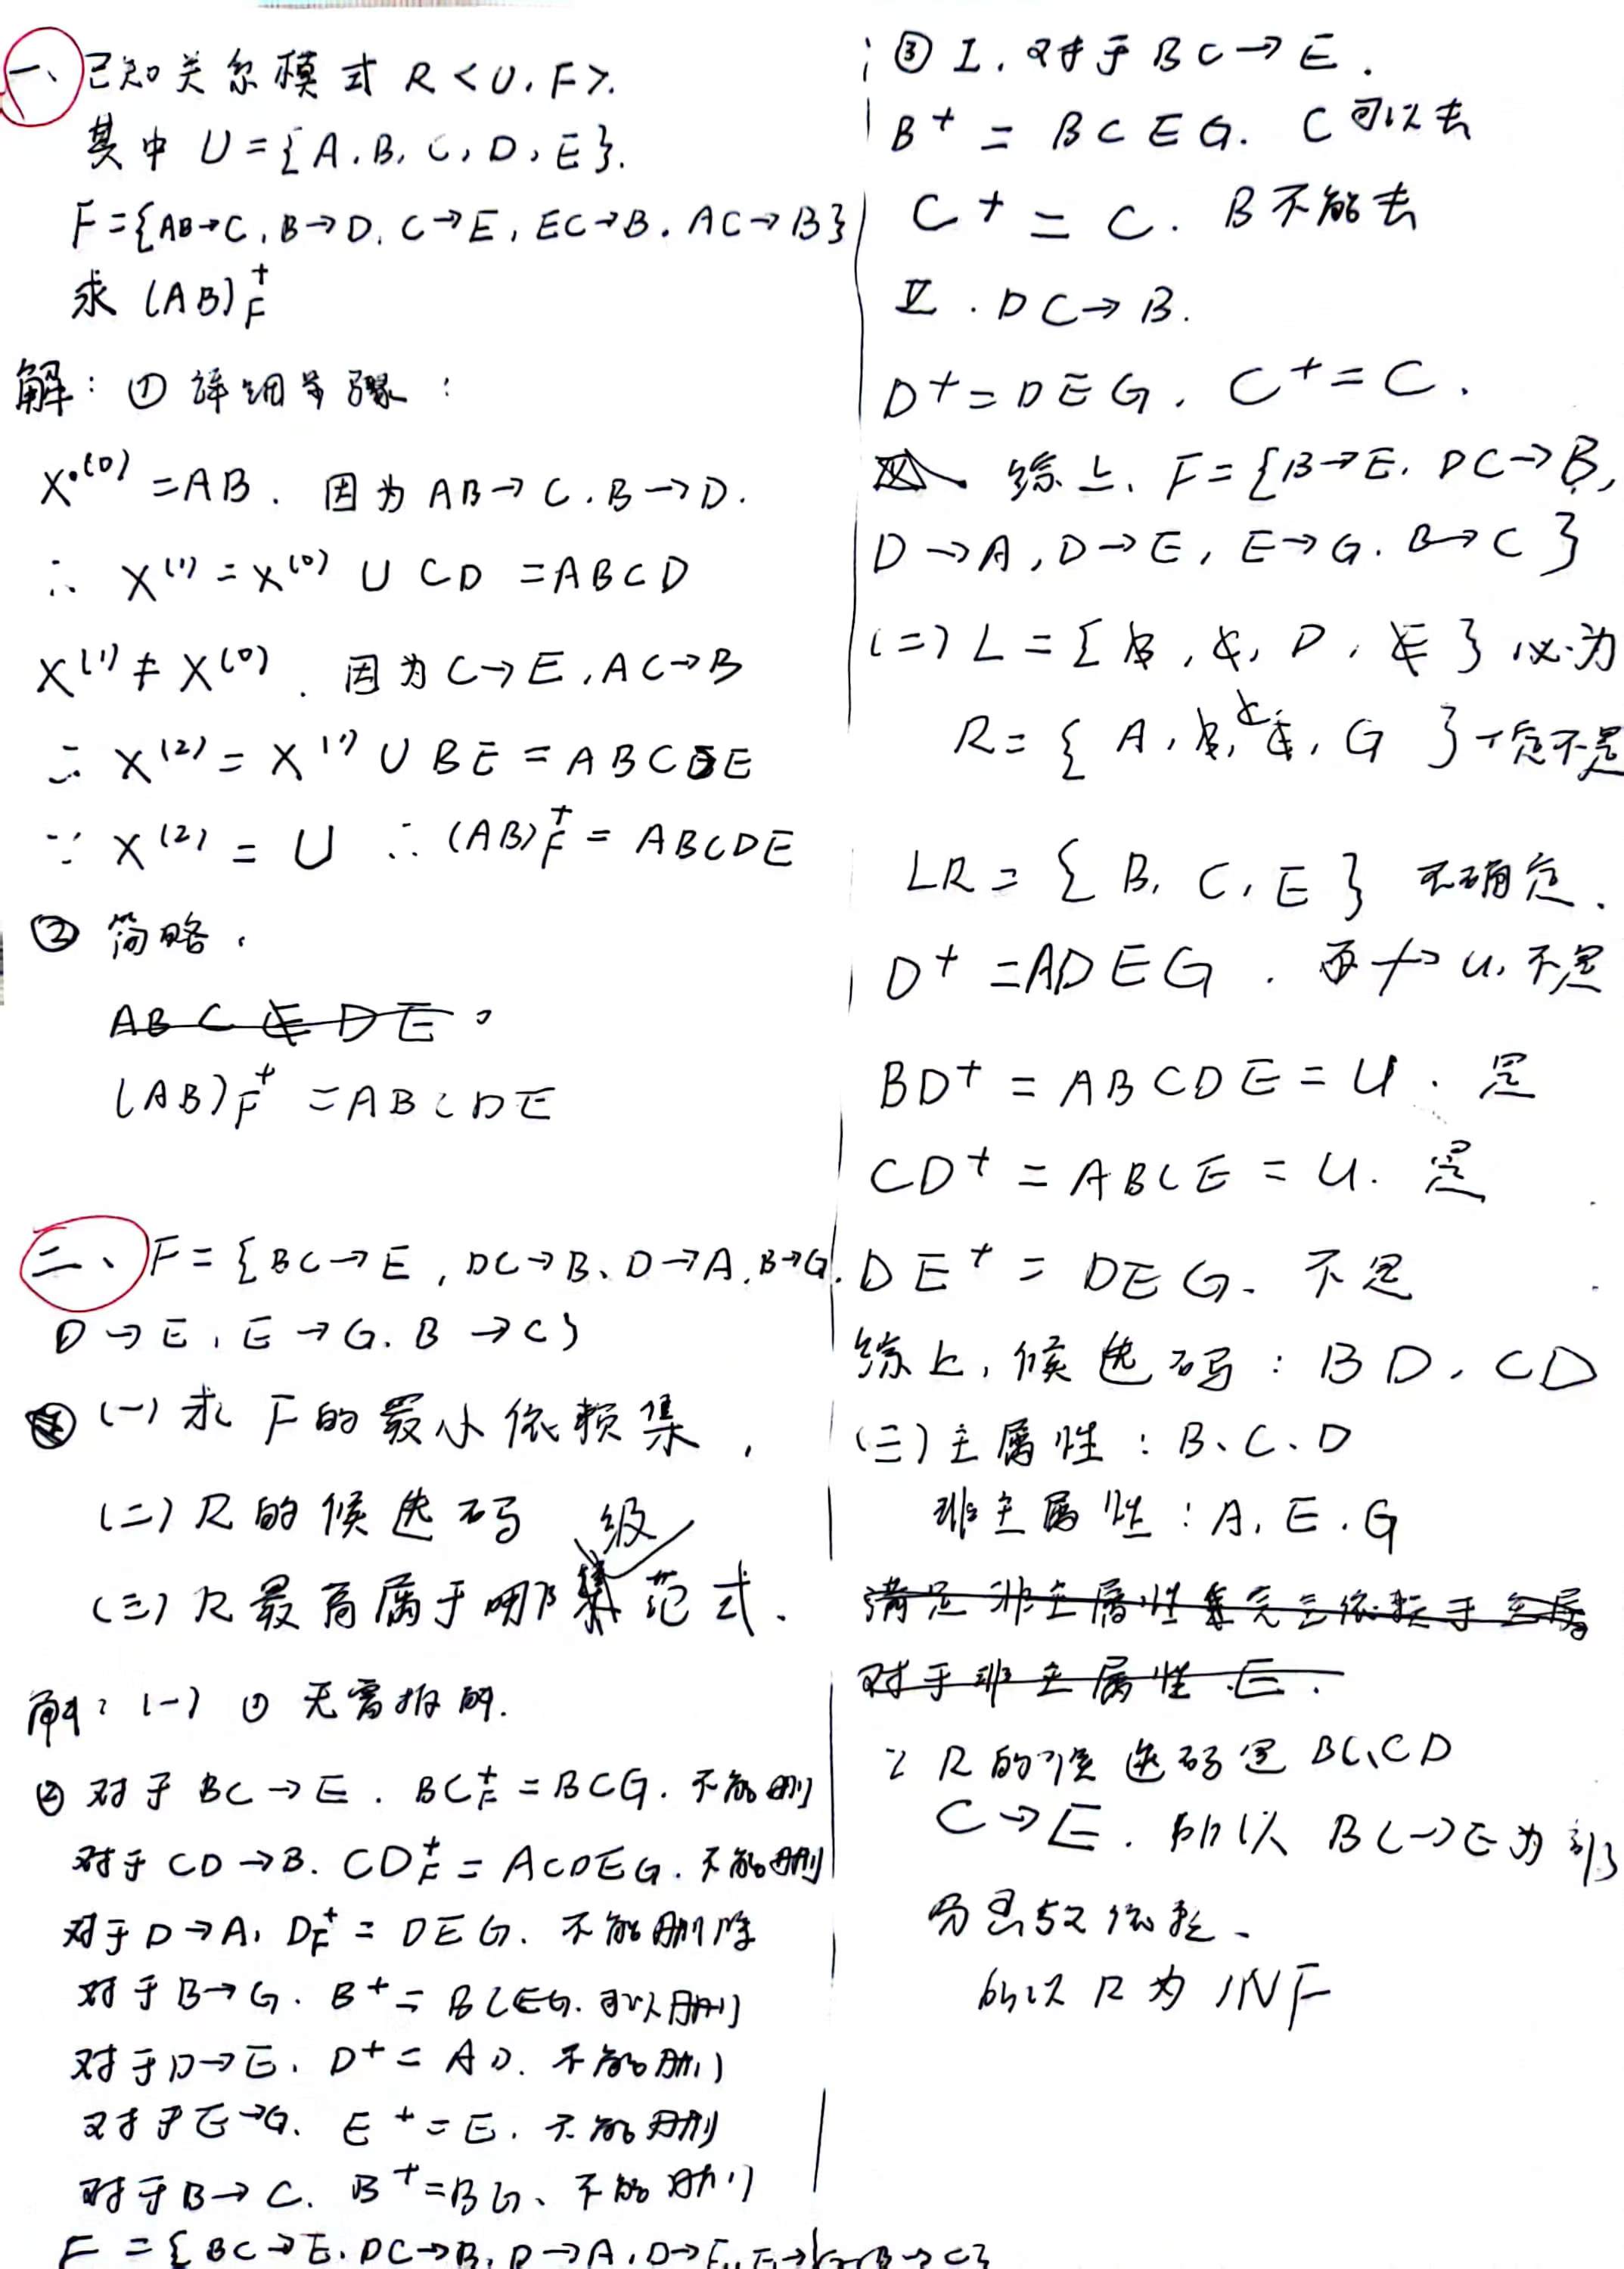 一、已知关系模式 R<U,F>.
其中 U={A,B,C,D,E}.
F={AB→C,B→D,C→E,EC→B,AC→B}
求 (AB)F+
解：① 详细步骤：
X(0)=AB. 因为 AB→C,B→D.
∴ X(1)=X(0) U CD =ABCD
X(1)≠X(0). 因为C→E,AC→B
∴ X(2)=X(1) U BE = ABCDE
∵ X(2) = U ∴ (AB)F+ = ABCDE
② 简略.
AB C E D E
(AB)F+ =ABCDE
二、F={BC→E,DC→B、D→A,B→G,
D→E,E→G,B→C}
(一)求 F的最小依赖集,
(二)R的候选码
(三)R最高属于哪级范式.
解：(一) ① 无需拆解.
② 对于 BC→E. BCF+=BCG. 不能删
对于 CD→B. CDF+ = ACDEG. 不能删
对于 D→A, DF+ = DEG. 不能删除
对于B→G. B+ = BCEG. 可以删
对于D→E, D+ = AD. 不能删
对于E→G. E+=E. 不能删
对于B→C. B+=BG、不能删
F={BC→E,DC→B,D→A,D→E,E→G,B→C}
③ I. 对于BC→E.
B+ = BCEG. C可以去
C+ = C. B不能去
II. DC→B.
D+=DEG, C+=C.
综上、F={B→E, DC→B,
D→A,D→E,E→G,B→C}
(二) L={B,C,D,E}必为
R={A,B,C,E,G}一定不是
LR={B,C,E}不确定.
D+=ADEG. →U,不是
BD+=ABCDE=U. 是
CD+=ABCE=U. 是
DE+=DEG. 不是
综上,候选码：BD,CD
(三)主属性：B、C、D
非主属性：A,E,G
满足非主属性集完全依赖于主属
对于非主属性E.
∵ R的候选码是BC、CD
C→E. 所以 BC→E为部
分函数依赖、
所以R为1NF